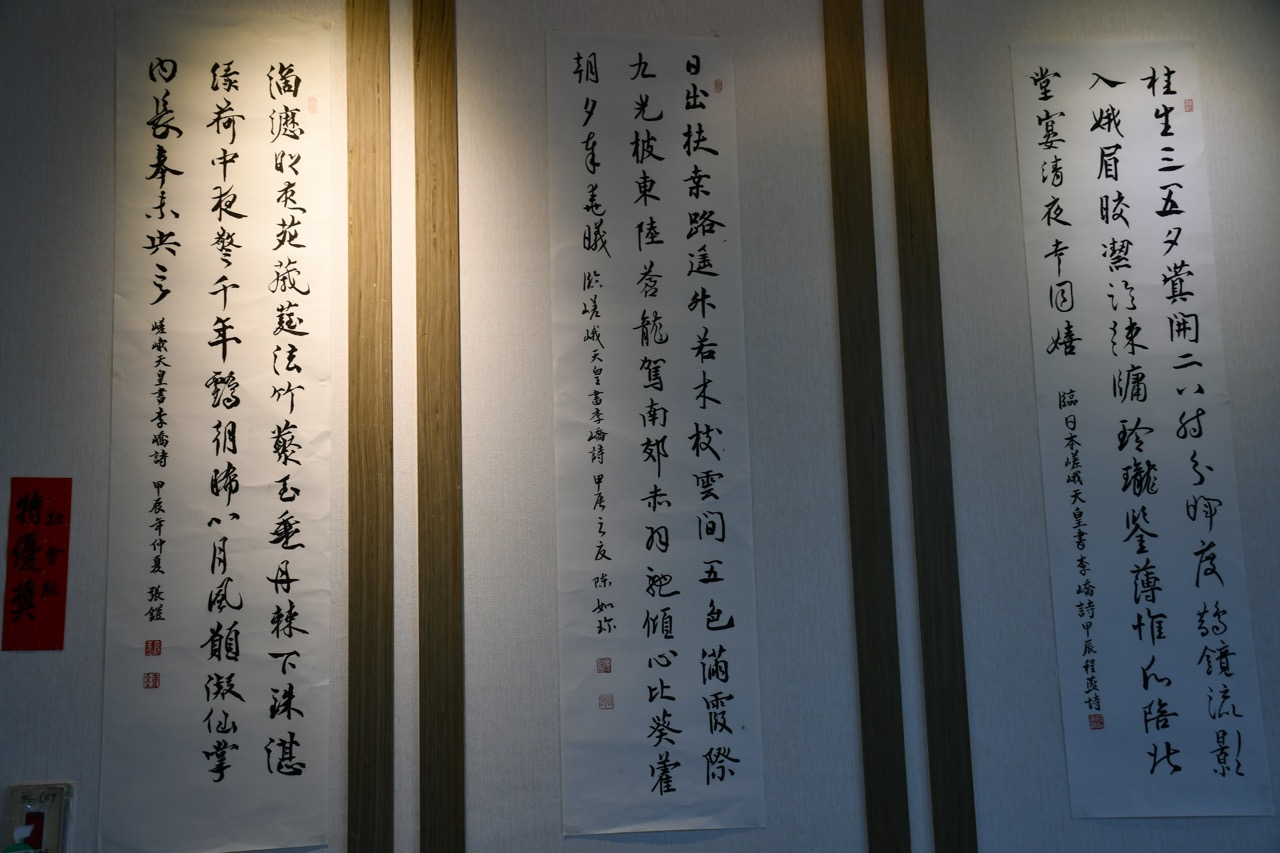 桂生三五夕蓂開二八時分暉度鵲鏡流影
入娥眉皎潔臨疎牖玲瓏鑒薄帷願陪北
堂宴清夜幸同嬉 臨日本嵯峨天皇書李嶠詩甲辰程燕詩
日出扶桒路遥升若木枝雲間五色滿霞際
九光披東陸蒼龍駕南郊赤羽馳傾心比葵藿
朝夕奉羲曦 臨嵯峨天皇書李嶠詩 甲辰之夏 陳如珍
滴瀝苑葳蕤泫竹藂玉垂丹棘下珠湛
綠荷中夜警千年鶴朝晞八月風願凝仙掌
內長奉未央宮 嵯峨天皇書李嶠詩 甲辰年仲夏 張鎰
社會組
特優獎